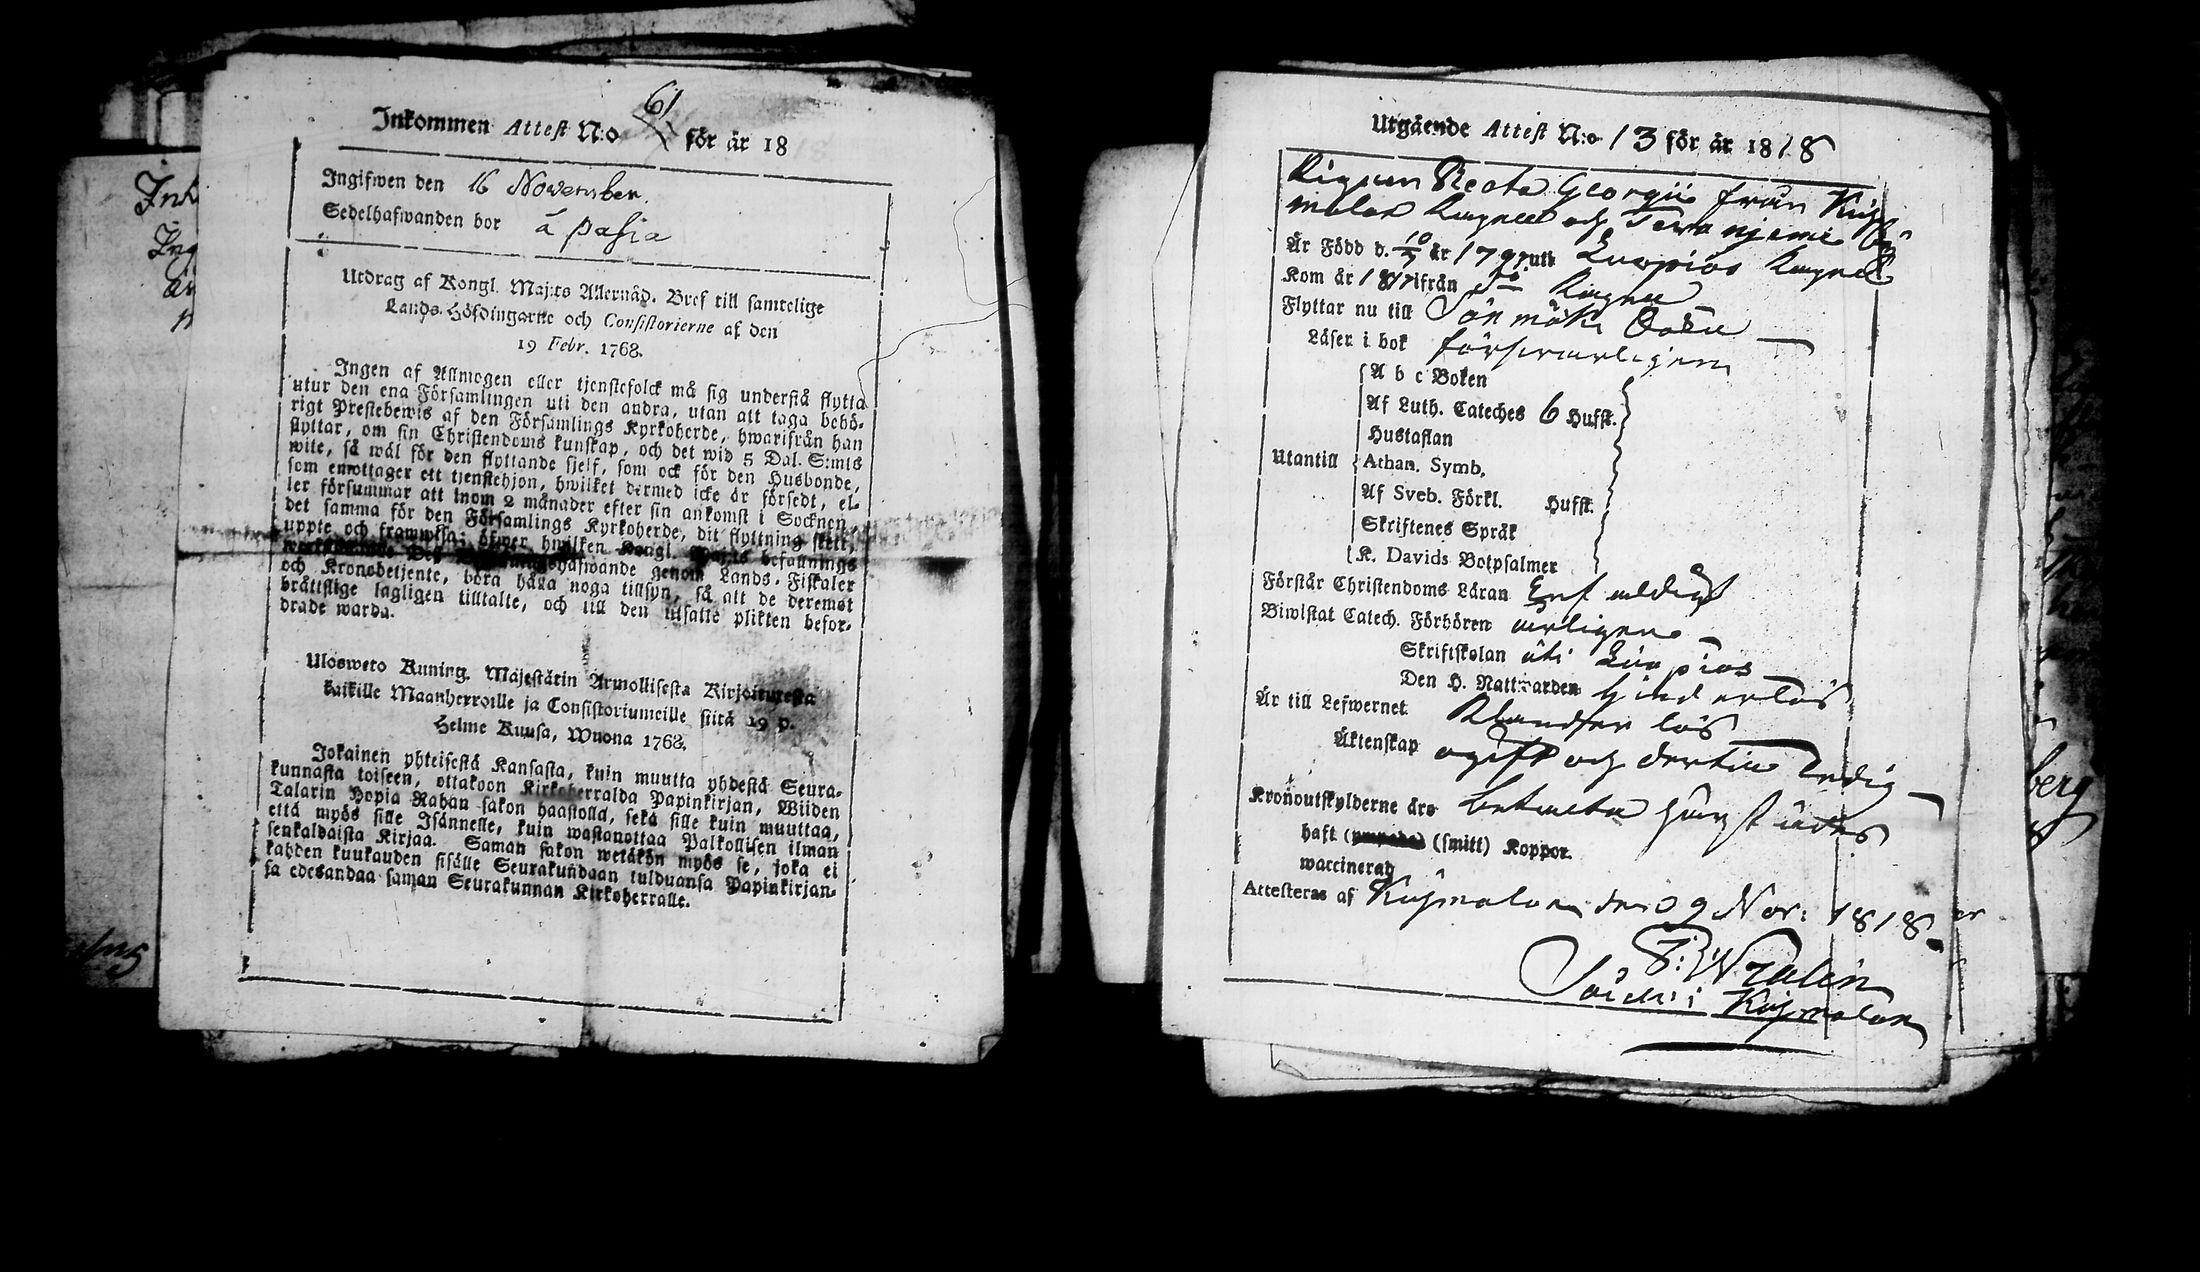 Inkommen Attest N:o 61 för år 18
Ingifwen den 16 November.
Sedelhafwanden bor å pasia
Utdrag af Kongl. Maj:ts Allernåd. Bref till samtelige
Lands-Höfdingarne och Consistorierne af den
19 Febr. 1768.
Ingen af Allmogen eller tjenstefolck må sig understå flytta
utur den ena Församlingen uti den andra, utan att taga behö-
rigt Prestebewis af den Församlings Kyrkoherde, hwarifrån han
flyttar, om sin Christendoms kunskap, och det wid 5 Dal. S:mts
wite, så wäl för den flyttande sjelf, som ock för den Husbonde,
som emottager ett tjenstehjon, hwilket dermed icke är försedt, el-
ler försummar att inom 2 månader efter sin ankomst i Socknen,
det samma för den Församlings Kyrkoherde, dit flyttning skett,
uppte och framwisa; öfwer hwilken Kongl. Maj:ts befallnings
hafwande genom Lands-Fiskaler
och Kronobetjente, böra hålla noga tillsyn, så att de deremot
bråttslige lagligen tilltalte, och till den utsatte plikten befor-
drade warda.
Ulosweto Kuning. Majestätin Armollisesta Kirjoituxesta
kaikille Maanherroille ja Consistoriumeille siitä 19 p.
Helme Kuusa, Wuona 1768.
Jokainen yhteisestä Kansasta, kuin muutta yhdestä Seura-
kunnasta toiseen, ottakoon Kirkoherralda Papinkirjan, Wiiden
Talarin Hopia Rahan sakon haastolla, sekä sille kuin muuttaa,
että myös sille Isännelle, kuin wastanottaa Palkollisen ilman
senkaldaista Kirjaa. Saman sakon wetäkön myös se, joka ei
kahden kuukauden sisälle Seurakundaan tulduansa Papinkirjan-
sa edesandaa saman Seurakunnan Kirkoherralle.
Utgående Attest N:o 13 för år 1818
Pigan Beata Georgii från
och
Är Född d. 10/7 år 1797 uti Kuopios
Kom år 1817 ifrån
Flyttar nu till
Läser i bok försvarligen
A b c Boken
Af Luth. Cateches 6 Hufst.
Hustaflan
Utantill Athan. Symb.
Af Sveb. Förkl. Hufst.
Skriftenes Språk
K. Davids Botpsalmer
Förstår Christendoms Läran Enfaldigt
Biwistat Catech. Förhören årligen
Skriftskolan uti Kuopios
Den H. Nattwarden hinderlös
Är till Lefwernet Klanderlös
Äktenskap ogift och dertill Ledig
Kronoutskylderne äro betalta
haft (smitt) Koppor.
waccinerad
Attesteras af den 9 Nov: 1818